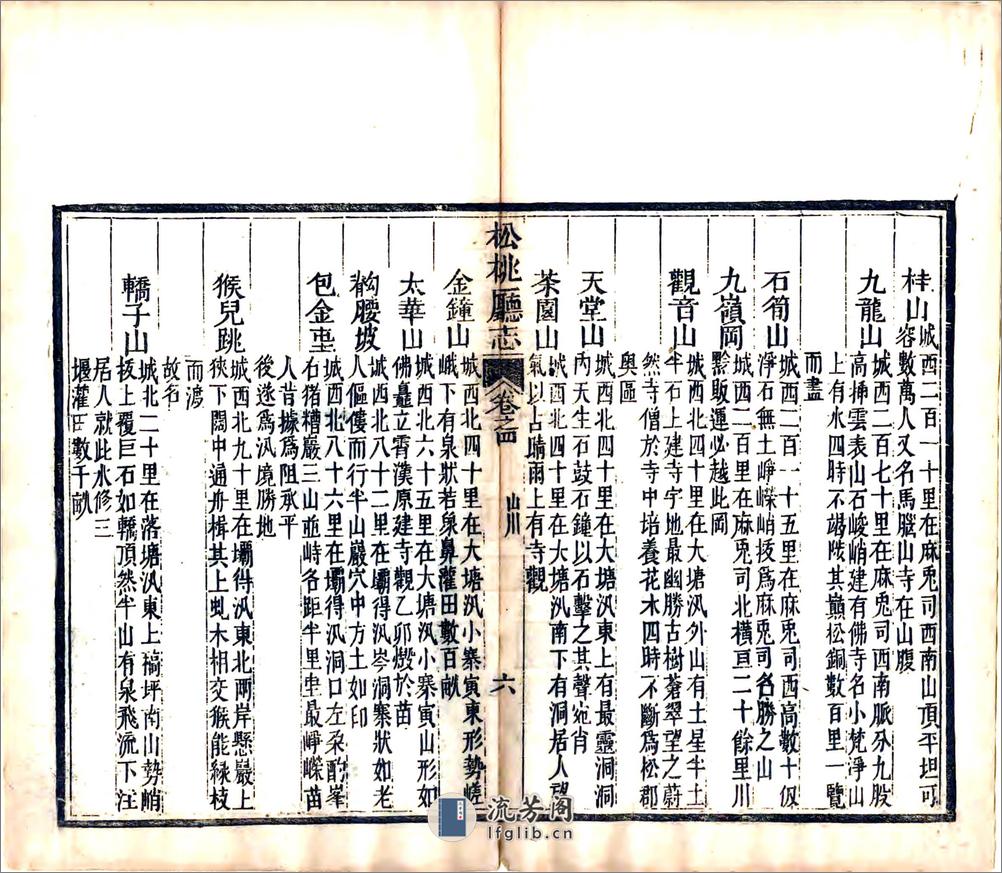 桂山城西二百一十里在麻兎司西南山頂平坦可
容數萬人又名馬腦山寺在山腹
九龍山城西二百七十里在麻兎司西南脈分九股
高揷雲表山石峻峭建有佛寺名小梵淨山
上有水四時不竭陟其巔松銅數百里一覽
而盡
石筍山城西二百一十五里在麻兎司西高數十仭
淨石無土崢嶸峭拔爲麻兎司名勝之山
九嶺岡城西二百里在麻兎司北橫亘二十餘里川
黔販運必越此岡
觀音山城西北四十里在大塘汛外山有土星半土
半石上建寺宇地最幽勝古樹蒼翠望之蔚
然寺僧於寺中培養花木四時不斷爲松郡
奥區
天堂山城西北四十里在大塘汛東上有最靈洞洞
內天生石鼓石鐘以石擊之其聲宛肖
茶園山城西北四十里在大塘汛南下有洞居人望
氣以占晴雨上有寺觀
松桃廳志 卷之四 山川 六
金鐘山城西北四十里在大塘汛小寨寅東形勢嵯
峨下有泉狀若象鼻灌田數百畝
太華山城西北六十五里在大塘汛小寨寅山形如
佛龕立霄漢原建寺觀乙卯燬於苗
腰坡城西北八十二里在壩得汛岑洞寨狀如老
人傴僂而行半山巖穴中方土如印
包金城西北八十六里在壩得汛洞口左朶酌峯
右猪糟巖三山並峙各距半里最崢嶸苗
人昔據爲阻承平
後遂爲汛境勝地
猴兒跳城西北九十里在壩得汛東北兩岸懸巖上
狹下闊中通舟楫其上虬木相交猴能緣枝
而渡
故名
轎子山城北二十里在落塘汛東上稿坪南山勢峭
拔上覆巨石如轎頂然半山有泉飛流下注
居人就此水修三
堰灌田數千畝
流芳阁
lfglib.cn